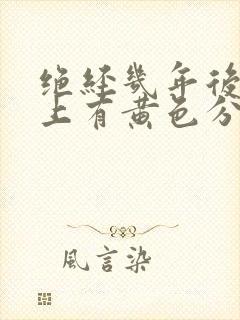 绝经几年後
上有黄色分
風言染